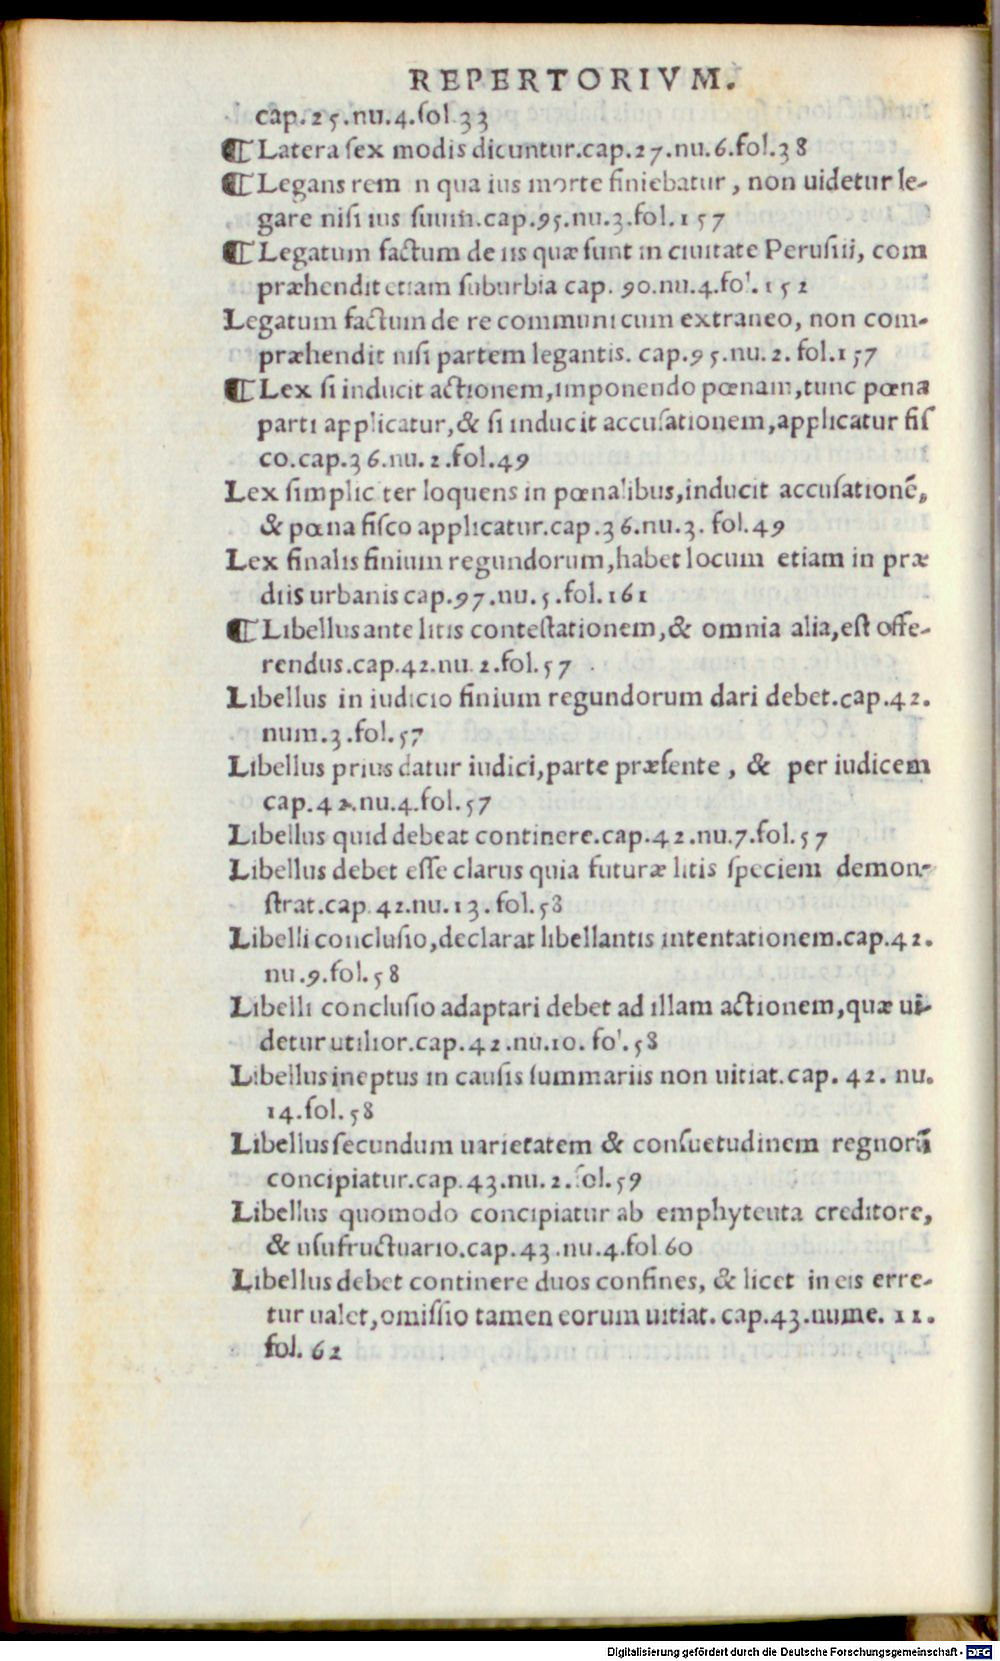 REPERTORIVM.
cap.25.nu.4.fol 33
¶ Latera ſex modis dicuntur.cap.27.nu.6.fol.38
¶ Legans rem n qua ius morte finiebatur, non uidetur le-
gare niſi ius ſuum.cap.95.nu.3.fol.157
¶ Legatum factum de iis quæ ſunt in ciuitate Peruſiii, com
præhendit etiam ſuburbia cap. 90.nu.4.fol.152
Legatum factum de re communi cum extraneo, non com-
præhendit niſi partem legantis. cap.95.nu.2.fol.157
¶ Lex ſi inducit actionem,imponendo pœnam,tunc pœna
parti applicatur,& ſi inducit accuſationem,applicatur fiſ
co.cap.36.nu.2.fol.49
Lex ſimplic ter loquens in pœnalibus,inducit accuſationē,
& pœna fiſco applicatur.cap.36.nu.3.fol.49
Lex finalis finium regundorum,habet locum etiam in præ
diis urbanis cap.97.nu.5.fol.161
¶ Libellus ante litis conteſtationem,& omnia alia,eſt offe-
rendus.cap.42.nu 2.fol.57
Libellus in iudicio finium regundorum dari debet.cap.42.
num.3.fol.57
Libellus prius datur iudici,parte præſente, & per iudicem
cap.42.nu.4.fol.57
Libellus quid debeat continere.cap.42.nu.7.fol.57
Libellus debet eſſe clarus quia futuræ litis ſpeciem demon-
ſtrat.cap.42.nu.13.fol.58
Libelli concluſio,declarat libellantis intentationem.cap.42.
nu.9.fol.58
Libelli concluſio adaptari debet ad illam actionem,quæ ui-
detur utilior.cap.42.nu.10.fol.58
Libellus ineptus in cauſis ſummariis non uitiat.cap. 42. nu.
14.fol.58
Libellus ſecundum uarietatem & conſuetudinem regnorū
concipiatur.cap.43.nu.2.fol.59
Libellus quomodo concipiatur ab emphyteuta creditore,
& uſufructuario.cap.43.nu.4.fol 60
Libellus debet continere duos confines, & licet in eis erre-
tur ualet,omiſſio tamen eorum uitiat.cap.43.nume. 11.
fol. 62
Digitalisierung gefördert durch die Deutsche Forschungsgemeinschaft - DFG